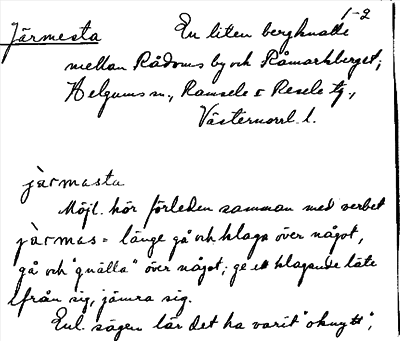 1-2
Järmesta En liten bergknalle
mellan Rådoms by och Råmarkberget;
Helgums sn., Ramsele & Resele tg.,
Västernorrl. l.
järmasta
Möjl. hör förleden samman med verbet
järmas = länge gå och klaga över något,
gå och "gnälla" över något; ge ett klagande läte
från sig, jämra sig.
Enl. sägen lär det ha varit "oknytt",